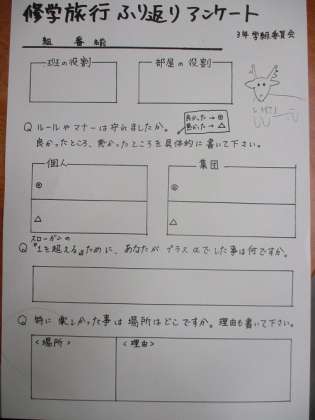 修学旅行 ふり返りアンケート
3年 学級委員会
組 番 名前
班の役割
部屋の役割
Q ルールやマナーは守れましたか。
良かった→◎
悪かった→△
良かったところ、悪かったところを具体的に書いて下さい。
個人
集団
◎
◎
△
△
スローガンの
Q 『1を超える』ために、あなたがプラスαでした事は何ですか。
Q 特に楽しかった事は場所はどこですか。理由も書いて下さい。
<場所>
<理由>